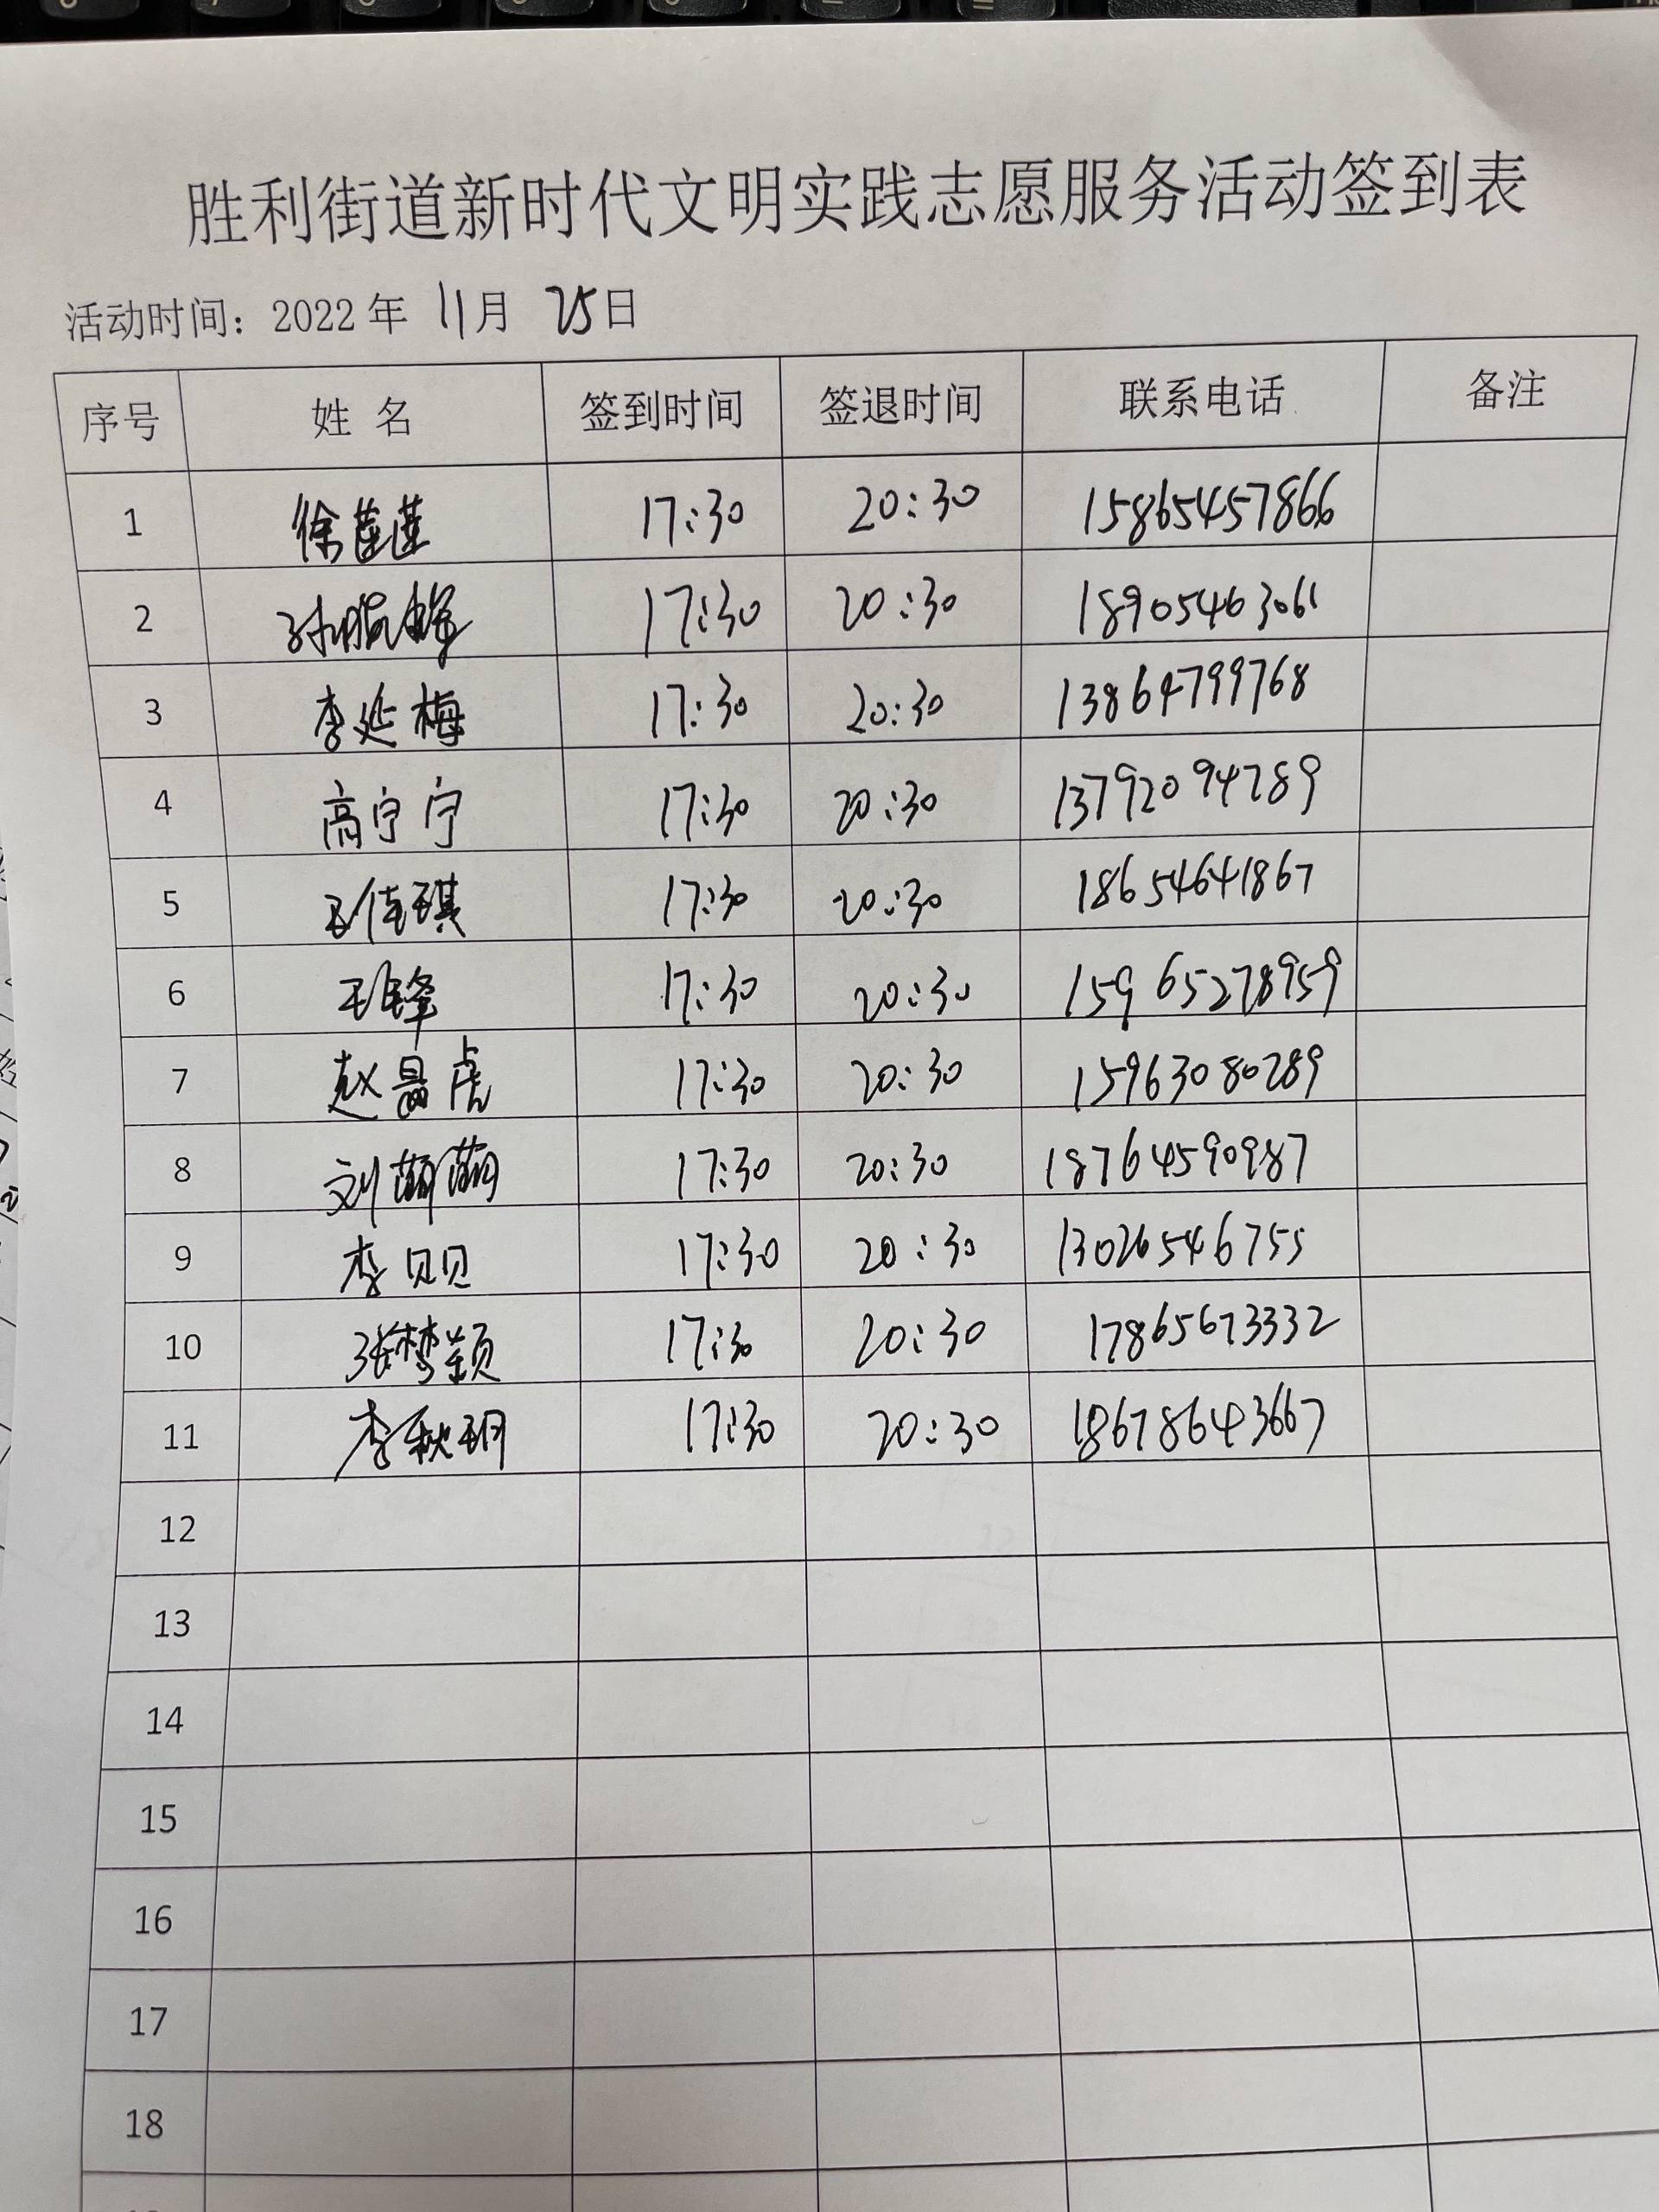 胜利街道新时代文明实践志愿服务活动签到表
活动时间：2022 年 11月 25日
序号 姓 名 签到时间 签退时间 联系电话 备注
1 徐莲莲 17:30 20:30 15865457866
2 17:30 20:30 18905463061
3 李延梅 17:30 20:30 13864799768
4 高宁宁 17:30 20:30 13792094789
5 王佳琪 17:30 20:30 18654641867
6 王锋 17:30 20:30 15965278959
7 赵晶虎 17:30 20:30 15963080289
8 刘萌萌 17:30 20:30 18764590987
9 李贝贝 17:30 20:30 13026546755
10 张梦颖 17:30 20:30 17865673332
11 李秋玥 17:30 20:30 18678643667
12
13
14
15
16
17
18